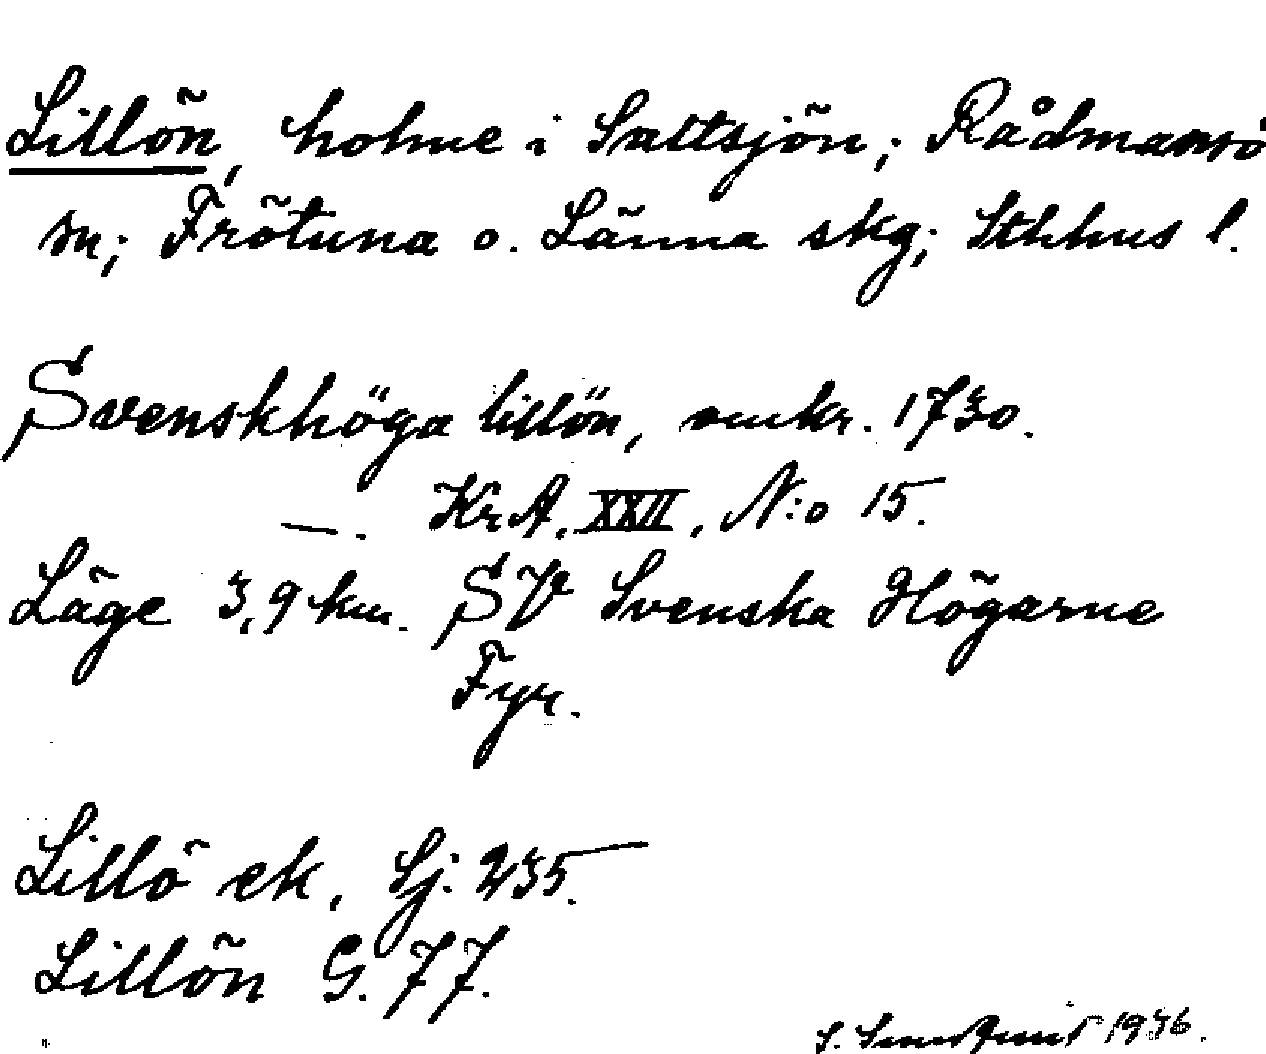 Lillön, holme i Saltsjön; Rådmansö
sn; Frötuna o. Länna skg; Sthlms l.
Svenskhöga lillön, omkr. 1730.
—. Kr.A. XXII, N:o 15.
Läge 3,9 km. SV Svenska Högarne
Fyr.
Lillö ek. Sj. 235.
Lillön G. 77.
S. 1936.